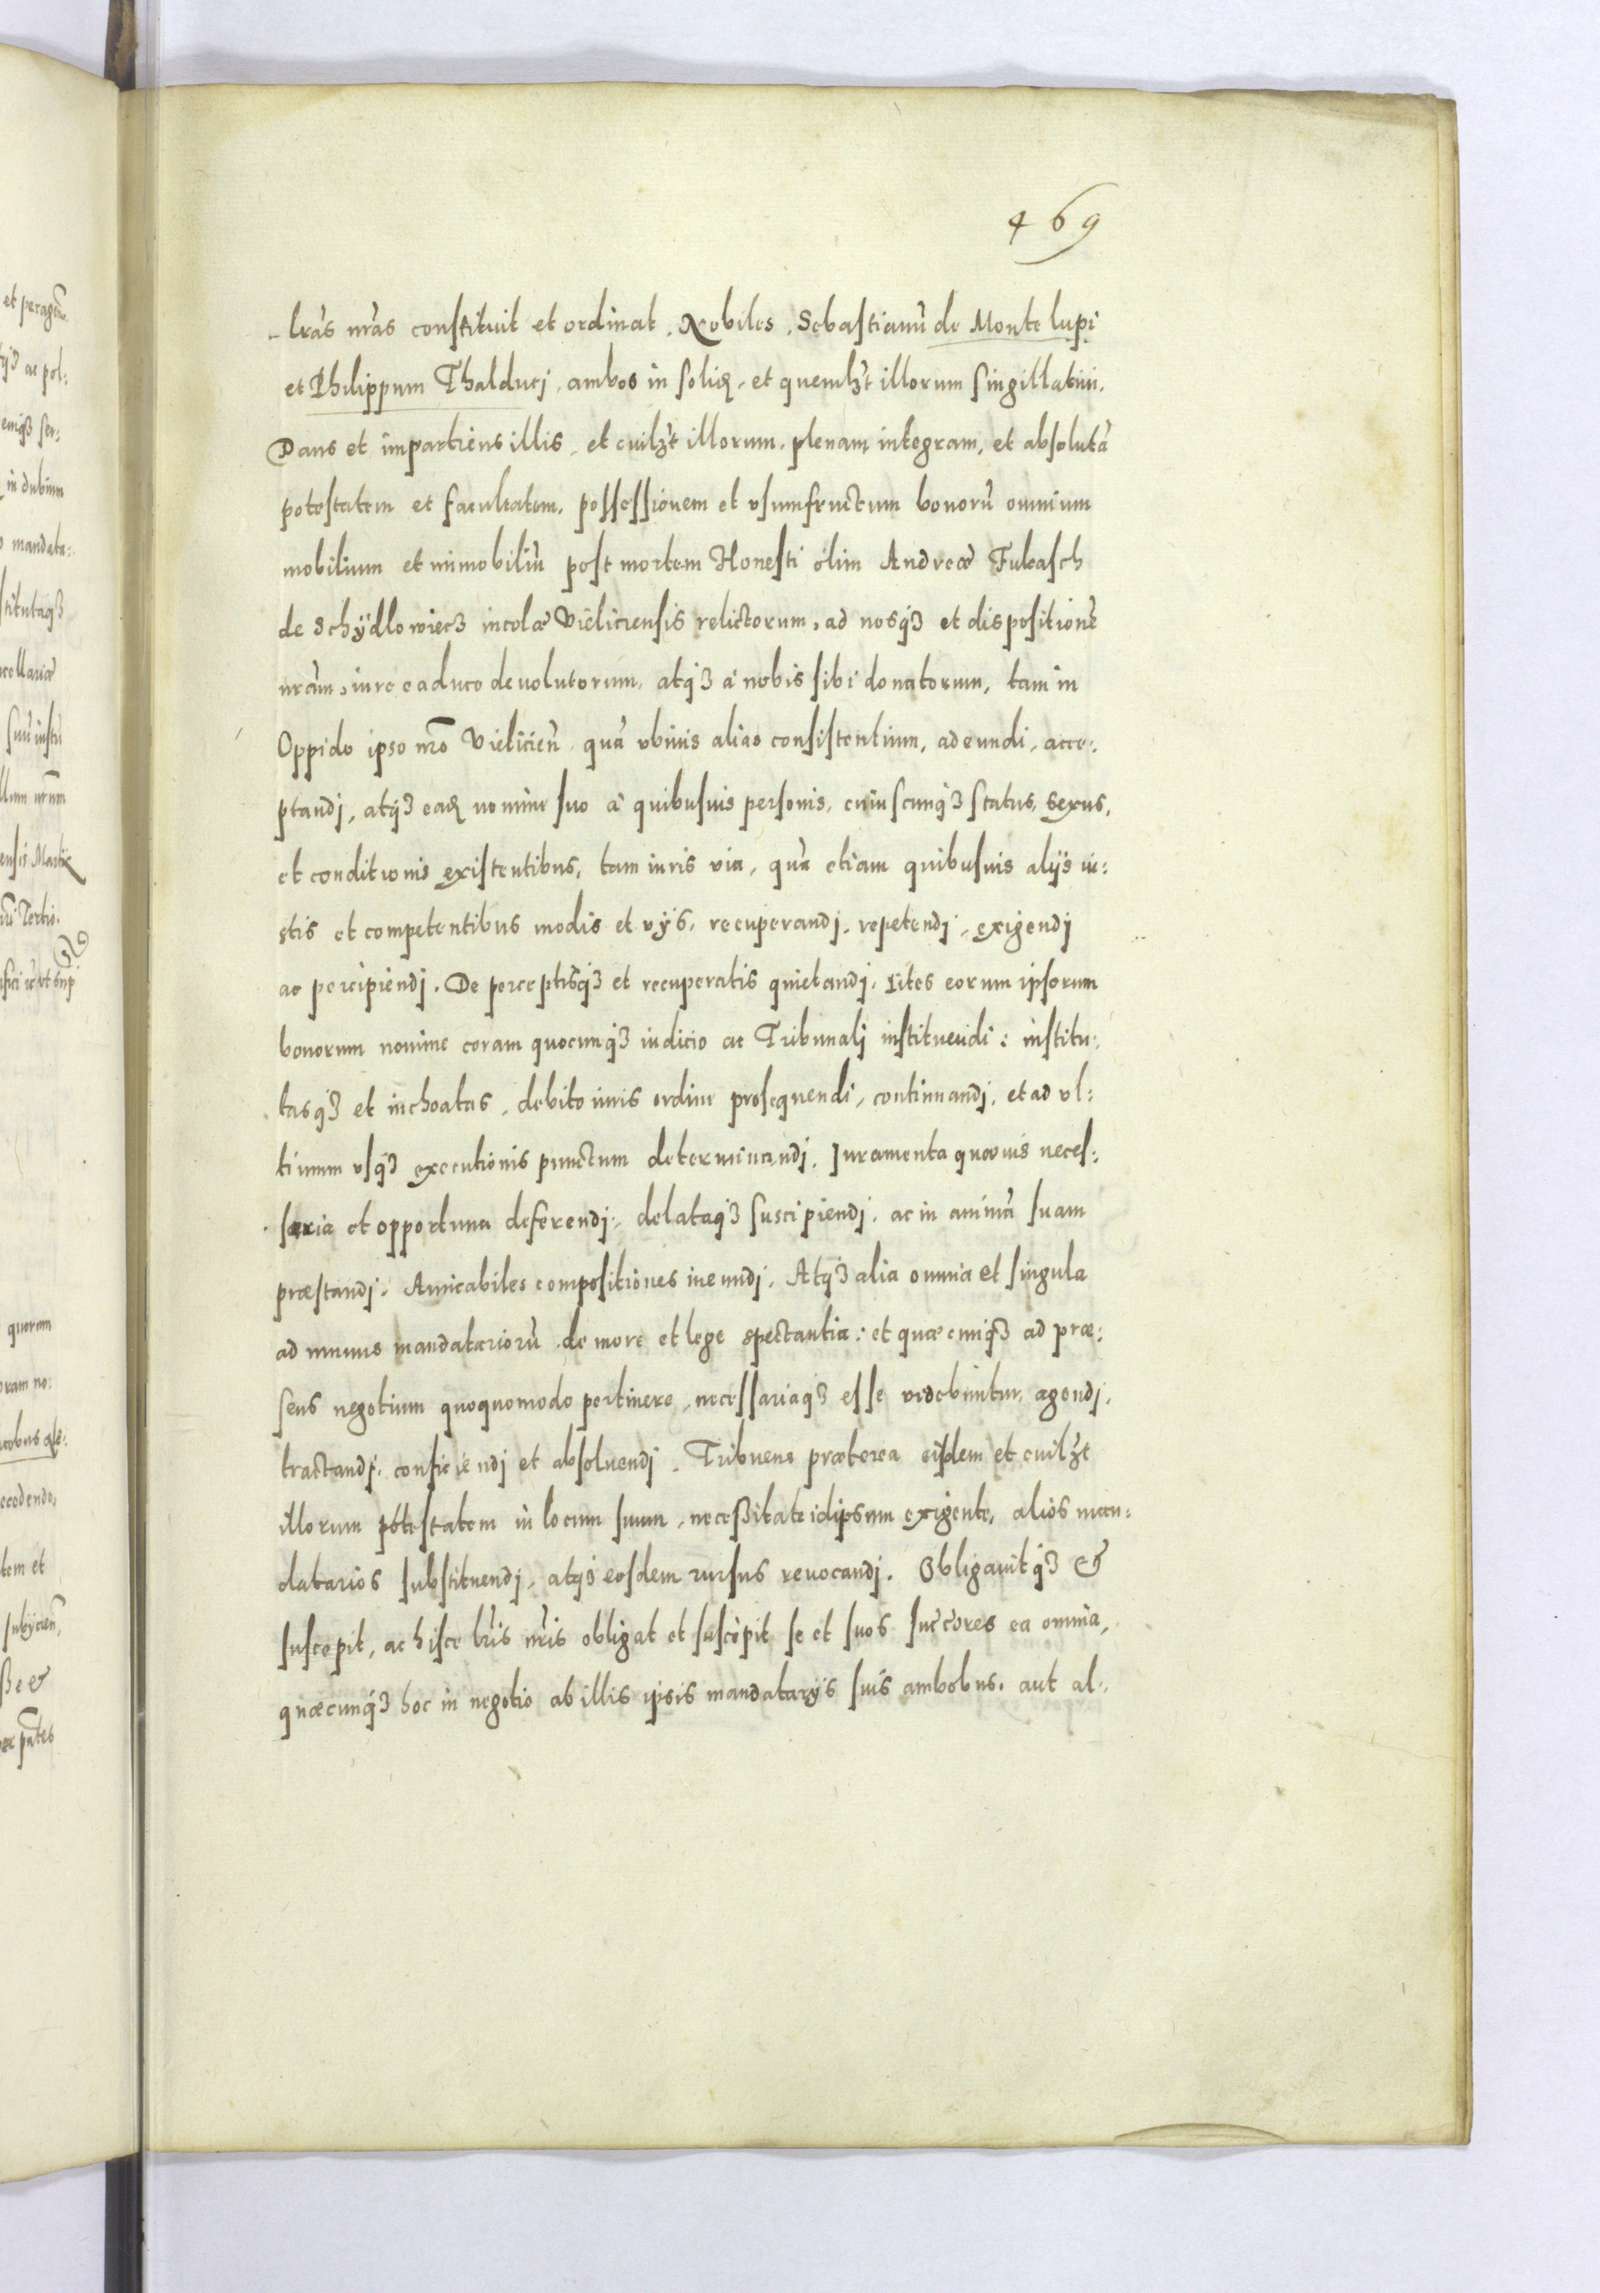 469
lrãs nrãs constituit et ordinat. Nobiles. Sebastianũ de Monte lupi
et Philippum Thalducj, ambos in soliđ, et quemlʒt illorum singillatim.
Dans et impartiens illis, et cuilʒt illorum, plenam, integram, et absolutã
potestatem et facultatem, possessionem et vsumfructum bonorũ omnium
mobilium et immobiliũ post mortem Honesti olim Andreæ Fukasch
de Schÿdlowiecz incolæ Vieliciensis relictorum, ad nosqʒ et dispositionẽ
nrãm, iure caduco deuolutorum, atqʒ à nobis sibi donatorum, tam in
Oppido ipso nrõ Vielicień, quã vbiuis alias consistentium, adeundi, acce:
ptandj, atqʒ eađ nomine suo à quibusuis personis, cuiuscunqʒ status, sexus,
et conditionis existentibus, tam iuris via, quã etiam quibusuis alijs iu:
stis et competentibus modis et vijs, recuperandj, repetendj, exigendj
ac percipiendj. De perceptisqʒ et recuperatis quietandj. Lites eorum ipsorum
bonorum nomine coram quocunqʒ iudicio ac Tribunalj instituendi: institu:
tasqʒ et inchoatas, debito iuris ordine prosequendi, continuandj, et ad vl:
timum vsqʒ executionis punctum determinandj. Juramenta quæuis neces:
saria et opportuna deferendj, delataqʒ suscipiendj, ac in animã suam
præstandj. Amicabiles compositiones ineundj. Atqʒ alia omnia et singula
ad munus mandatariorũ de more et lege spectantia: et quæcunqʒ ad præ:
sens negotium quoquomodo pertinere, necessariaqʒ esse videbuntur, agendj,
tractandj, conficiendj et absoluendj. Tribuens præterea eisdem et cuilʒt
illorum potestatem in locum suum, neceßitate idipsum exigente, alios man:
datarios substituendj, atqʒ eosdem rursus reuocandj. Obligauitqʒ &
suscepit, ac hisce lr̃is nr̃is obligat et suscipit se et suos succ̃ores ea omnia,
quæcunqʒ hoc in negotio ab illis ipsis mandatarijs suis ambobus, aut al: